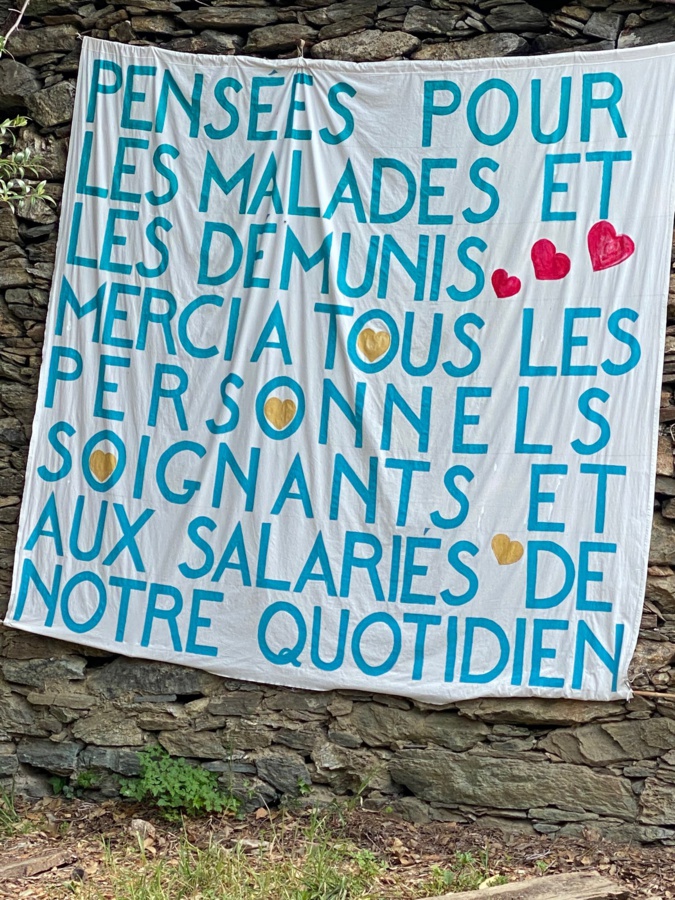 PENSÉES POUR
LES MALADES ET
LES DÉMUNIS
MERCI A TOUS LES
PERSONNELS
SOIGNANTS ET
AUX SALARIÉS DE
NOTRE QUOTIDIEN